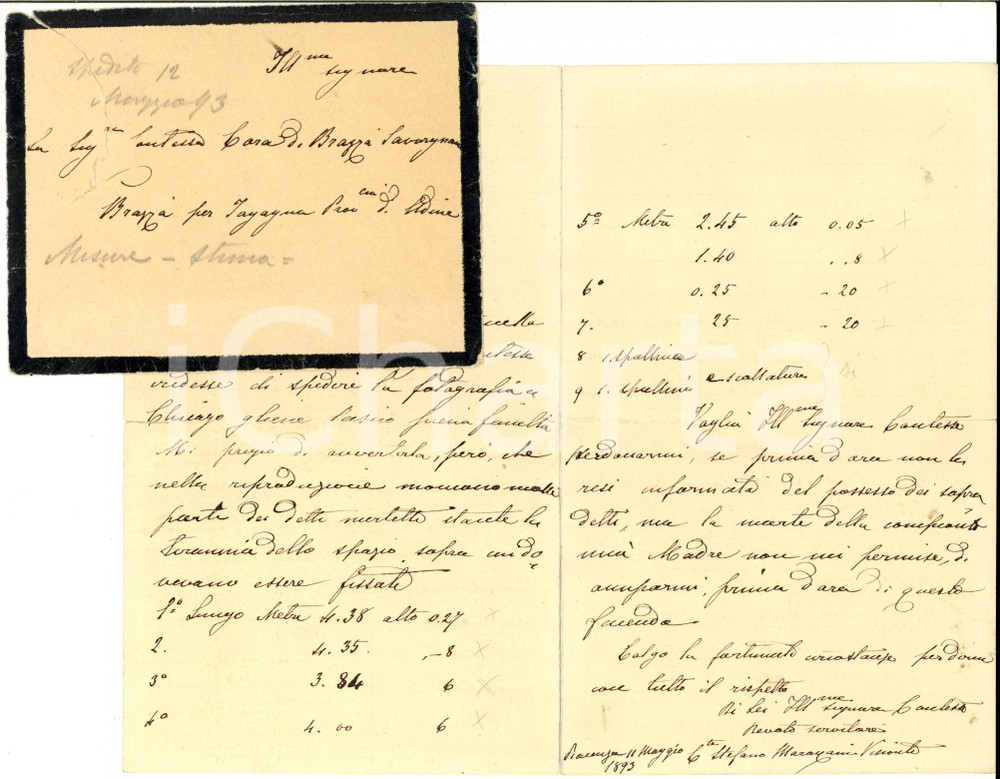 Spedite 12
Maggio 93
Ill.ma
Signora
La Sig.ra Contessa Cora di Brazzà Savorgnan
Brazzà per Fagagna Prov.cia d. Udine
Misure - Stima =
iCharta
vedesse di spedire la fotografia a
Chicago gliene lascio piena facoltà
Mi pregio di avvertirla, però, che
nella riproduzione mancano molte
parti dei detti merletti stante la
tirannia dello spazio sopra cui do
vevano essere fissati
1º Lungo Metri 4.38 alto 0.27 x
2. 4.35. ,-8 x
3º 3.84 6 x
4º 4.00 6 x
5º Metri 2.45 alto 0.05 x
1.40 . . 8 x
6º 0.25 - 20 x
7. 25 - 20 x
8 1 spallina
9 1. spallina e scollatura
Voglia Ill.ma Signora Contessa
perdonarmi, se prima d'ora non la
resi informata del possesso dei sopra
detti, ma la morte della compianta
mia Madre non mi permise, di
occuparmi, prima d'ora di questa
faccenda
Colgo la fortunata circostanza per dirmi
con tutto il rispetto
Di Lei Ill.ma Signora Contessa
Devoto servitore
Piacenza 11 Maggio C.te Stefano Marazzani Visconti
1893